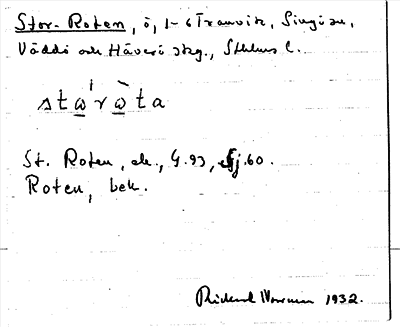 Stor-Roten, ö, 1-6 Tranvik, Singö sn,
Väddö och Häverö skg., Sthlms l.
stωrωta
St. Roten, ek., G.93, Fj.60.
Roten, bek.
1932.